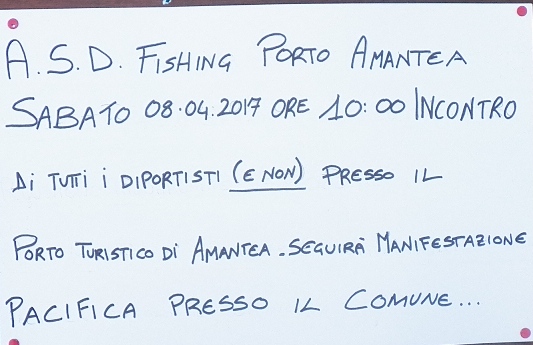 A.S.D. FISHING PORTO AMANTEA
SABATO 08.04.2017 ORE 10:00 INCONTRO
Di TUTTI i DIPORTISTI (E NON) PRESSO IL
PORTO TURISTICO Di AMANTEA - SEGUIRÀ MANIFESTAZIONE
PACIFICA PRESSO IL COMUNE...